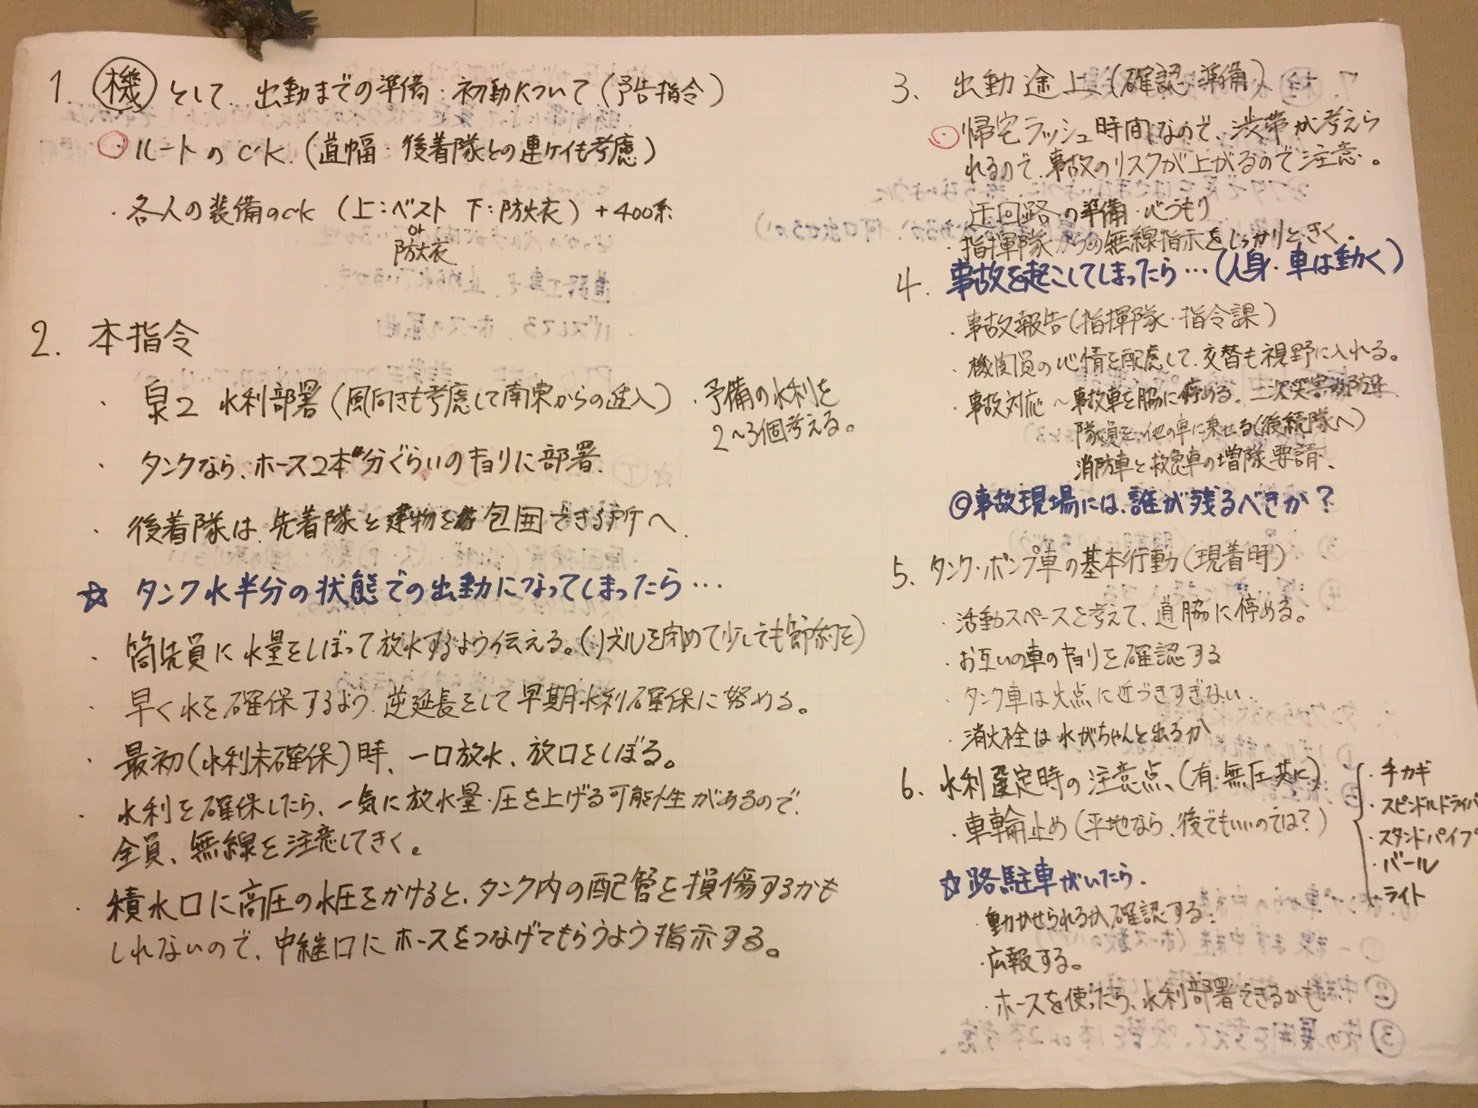 1. 機 として 出動までの準備・初動について (予告指令)
・ルートのCK. (道幅・後着隊との連ケイも考慮)
・各人の装備のCK (上:ベスト 下:防火衣) +400系
or
防火衣
2. 本指令
・泉2 水利部署 (風向きも考慮して南東からの進入)
・予備の水利を
2〜3個考える。
・タンクなら、ホース2本分ぐらいのキョリに部署.
・後着隊は、先着隊と建物を包囲できる所へ.
☆ タンク水半分の状態での出動になってしまったら…
・筒先員に水量をしぼって放水するよう伝える。(ノズルを閉めて少しでも節約を)
・早く水を確保するよう、逆延長をして早期水利確保に努める。
・最初(水利未確保)時、一口放水、放口をしぼる。
・水利を確保したら、一気に放水量・圧を上げる可能性があるので、
全員、無線を注意してきく。
・積水口に高圧の水圧をかけると、タンク内の配管を損傷するかも
しれないので、中継口にホースをつなげてもらうよう指示する。
3. 出動途上 (確認・準備)
・帰宅ラッシュ時間なので、渋帯が考えら
れるので、事故のリスクが上がるので注意。
・迂回路の準備・心づもり
・指揮隊からの無線指示をしっかりときく.
4. 事故を起こしてしまったら…(人身・車は動く)
・事故報告(指揮隊・指令課)
・機関員の心情を配慮して、交替も視野に入れる。
・事故対応 〜事故車を脇に停める. 二次災害の防止
隊員を、他の車に乗せる(後続隊へ)
消防車と救急車の増隊要請、
◎事故現場には、誰が残るべきか?
5. タンク・ポンプ車の基本行動(現着時)
・活動スペースを考えて、道脇に停める。
・お互いの車のキョリを確認する
・タンク車は火点に近づきすぎない.
・消火栓は水がちゃんと出るか
6. 水利選定時の注意点、(有・無圧共に)
・手カギ
・スピンドルドライバ
・スタンドパイプ
・バール
・ライト
・車輪止め(平地なら、後でもいいのでは?)
☆路駐車がいたら.
・動かせられるか確認する.
・広報する。
・ホースを使ったら、水利部署できるかも.